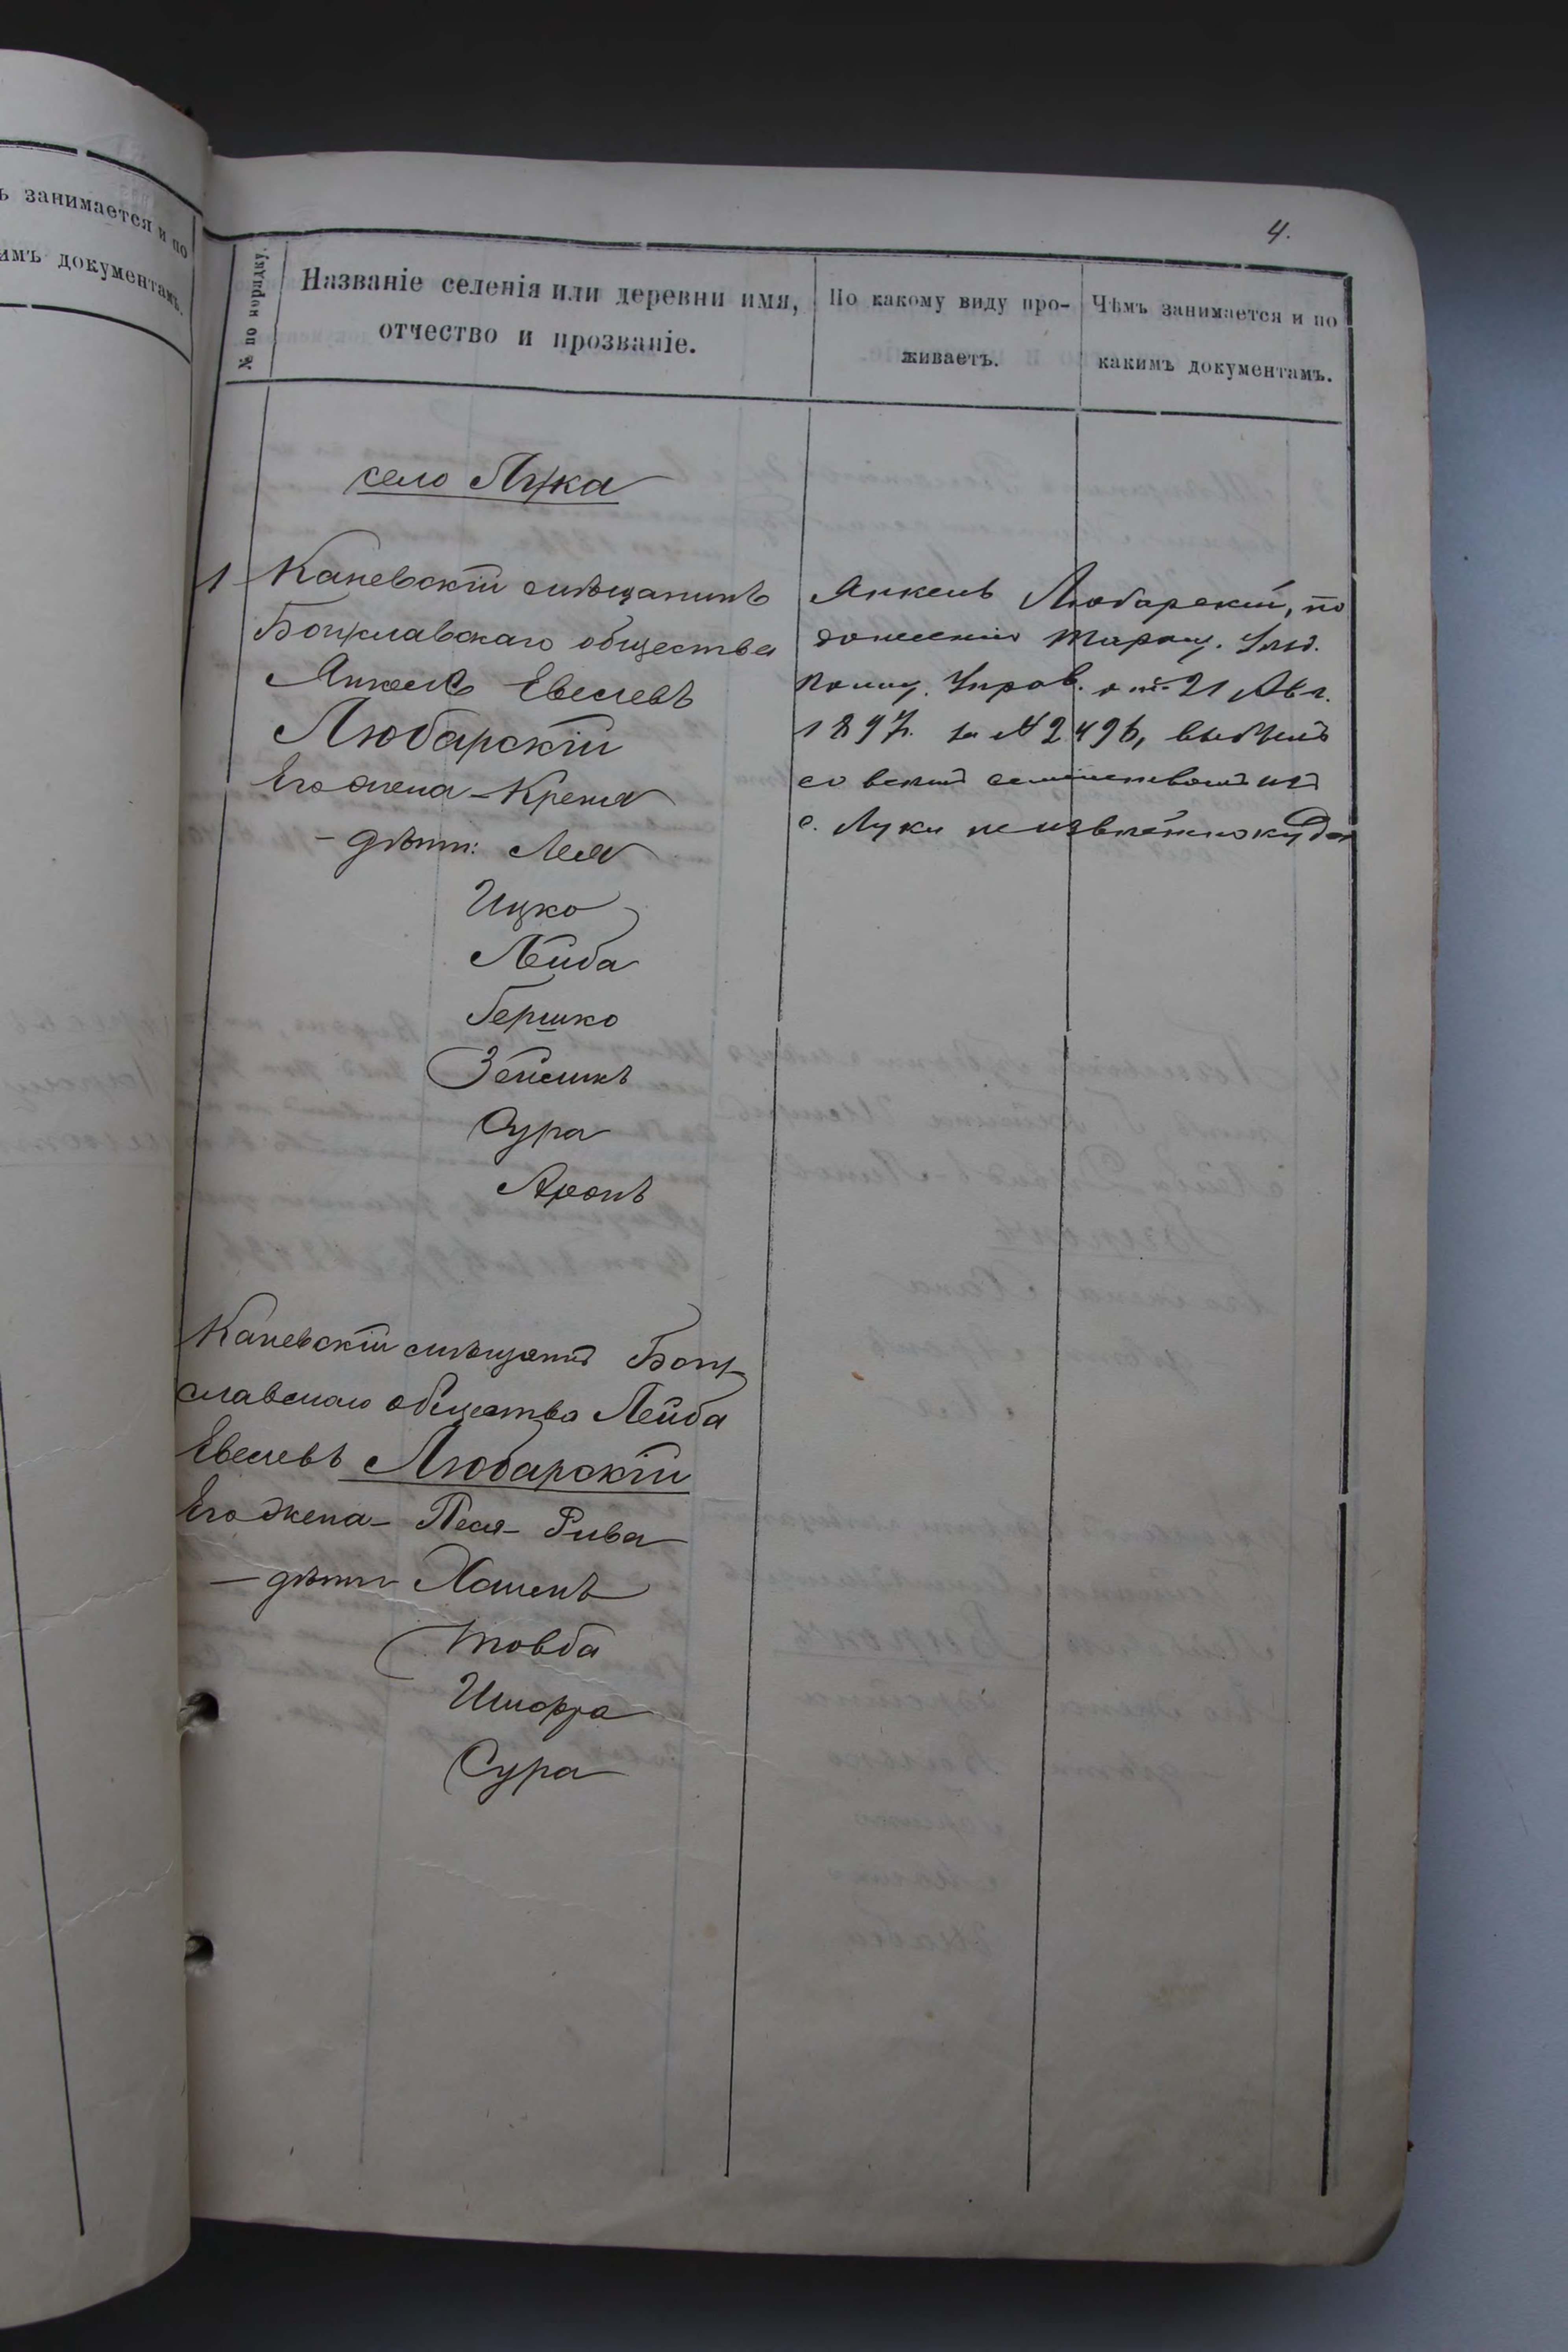 ъ занимается и по
имъ документамъ.
4.
№ по порядку.
Названіе селенія или деревни имя,
отчество и прозваніе.
По какому виду про-
живаетъ.
Чѣмъ занимается и по
какимъ документамъ.
село Лука
1 Каневскій мѣщанинъ
Богуславскаго общества
Янкель Евелевъ
Любарскій
Его жена - Крейня
- дѣти: Лея
Ицко
Лейба
Гершко
Зейликъ
Сура
Аронъ
Янкель Любарскій, по
донесенію Таращ. Уѣзд.
Полиц. Управ. отъ 21 Авг.
1897. за № 2496, выбылъ
со всѣмъ семействомъ изъ
с. Луки неизвѣстно куда
Каневскій мѣщанинъ Богу-
славскаго общества Лейба
Евелевъ Любарскій
Его жена - Песя - Рива
- дѣти
Товба
Шифра
Сура